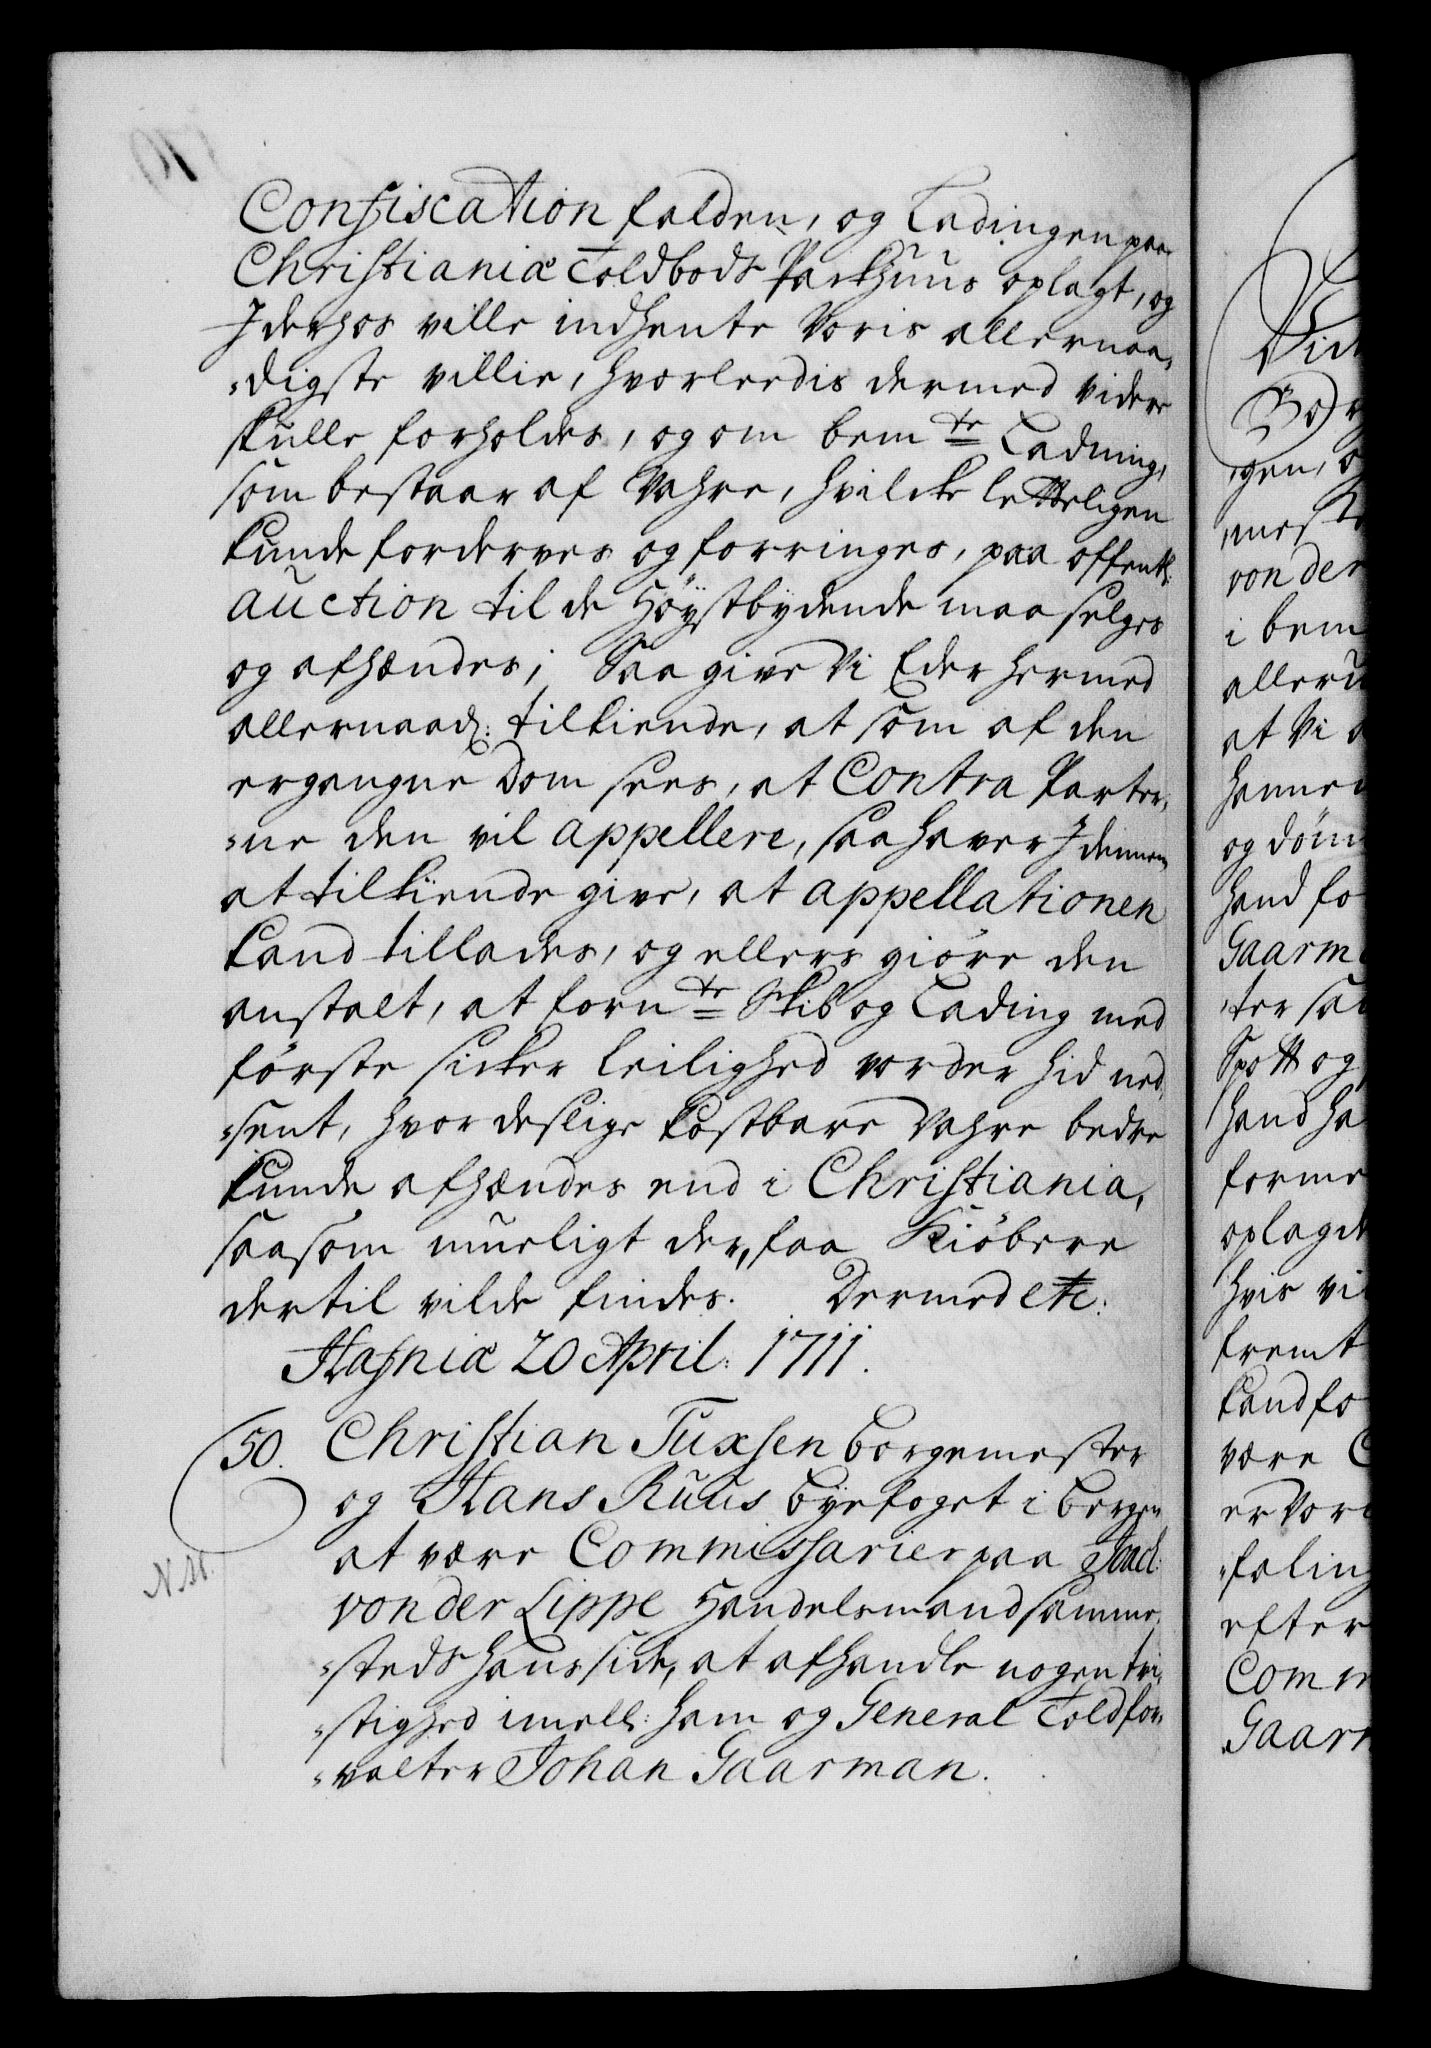 Confiscation falden, og Ladingen paa
Christianiæ Toldbods Packhuus oplagt, og
I derhos ville indhente Voris allernaa„
„digste villie, hvorleedis dermed videre
skulle forholdes, og om bem te Ladning,
som bestaar af Vahre, hvilcke letteligen
kunde forderves og forringes, paa offentl:
auction til de Høystbydende maa selges
og afhændes; Saa give Vi Eder hermed
allernaad: tilkiende, at som af den
ergangne Dom sees, at Contra Parter„
„ne den vil appellere, saa haver I dennem
at tilkiende give, at appellationen
kand tillades, og ellers giøre den
anstalt, at forn te Skib og Lading med
første sicker leilighed vorder hid ned„
„sent, hvor deslige kostbare Vahre bedre
kunde afhændes end i Christiania,
saasom mueligt der, faa Kiøbere
dertil vilde findes. Dermed etc:
Hafniæ 20 April: 1711.
50. Christian Tuxsen borgemester
og Hans Ruus byefoget i bergen
at være Commissarier paa Joach:
von der Lippe Handelsmand samme„
„steds hans side, at afhandle nogen tvi„
„stighed imell: ham og General Toldfor„
„valter Johan Gaarman.
N.M.
Vid
Bor
„gen, o
„meste
von der
i bem
alleru
at Vi a
hannem
og døm
hand fo
Gaarma
„ter sa
Spott og
hand ha
forme
oplagde
hvis vi
fremt
kand fo
være C
er Vor
„faling
efter
Comm
Gaarm